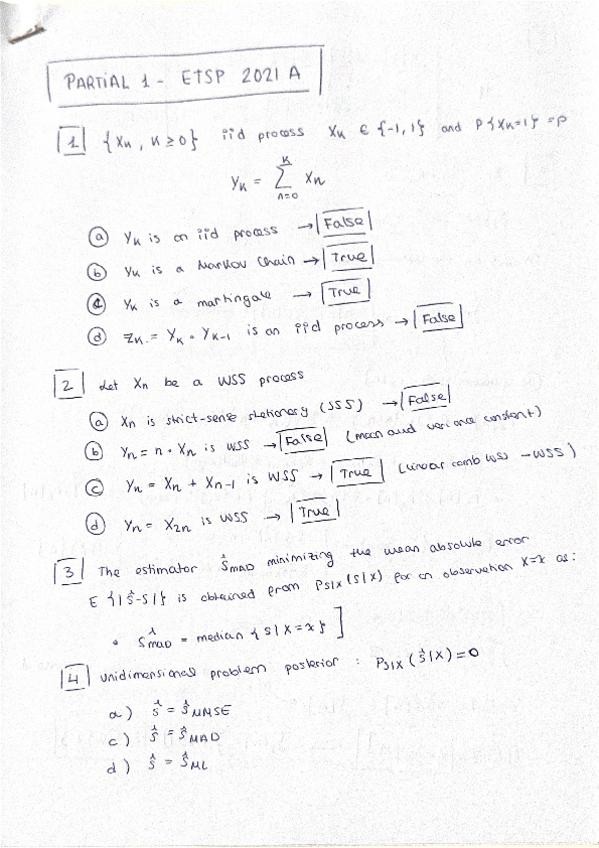 PARTIAL 1 - ETSP 2021 A
1 {Xk, k≥0} iid process Xk ∈ {-1, 1} and P{Xk=1} = p
Yk = Σ_{n=0}^{K} Xn
a Yk is an iid process → False
b Yk is a Markov Chain → True
c Yk is a martingale → True
d Zk = Yk · Yk-1 is an iid process → False
2 Let Xn be a WSS process
a Xn is strict-sense stationary (SSS) → False
b Yn = n · Xn is WSS → False (mean and variance constant)
c Yn = Xn + Xn-1 is WSS → True (Linear comb WSS → WSS)
d Yn = X2n is WSS → True
3 The estimator ŜMAD minimizing the mean absolute error
E {|Ŝ-S|} is obtained from PS|X (S|X) for an observation X=x as:
• ŜMAD = median {S|X=x} ]
4 Unidimensional problem posterior : PS|X (ŝ|X) = 0
a) ŝ = ŝMMSE
c) ŝ = ŝMAD
d) ŝ = ŝML